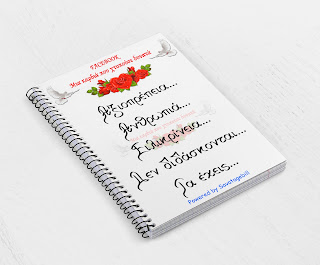 FACEBOOK
Μια καρδιά που χτυπούσε δυνατά
Αξιοπρέπεια...
Ανθρωπιά...
Ειλικρίνεια...
Δεν διδάσκονται...
Τα έχεις...
Powered by